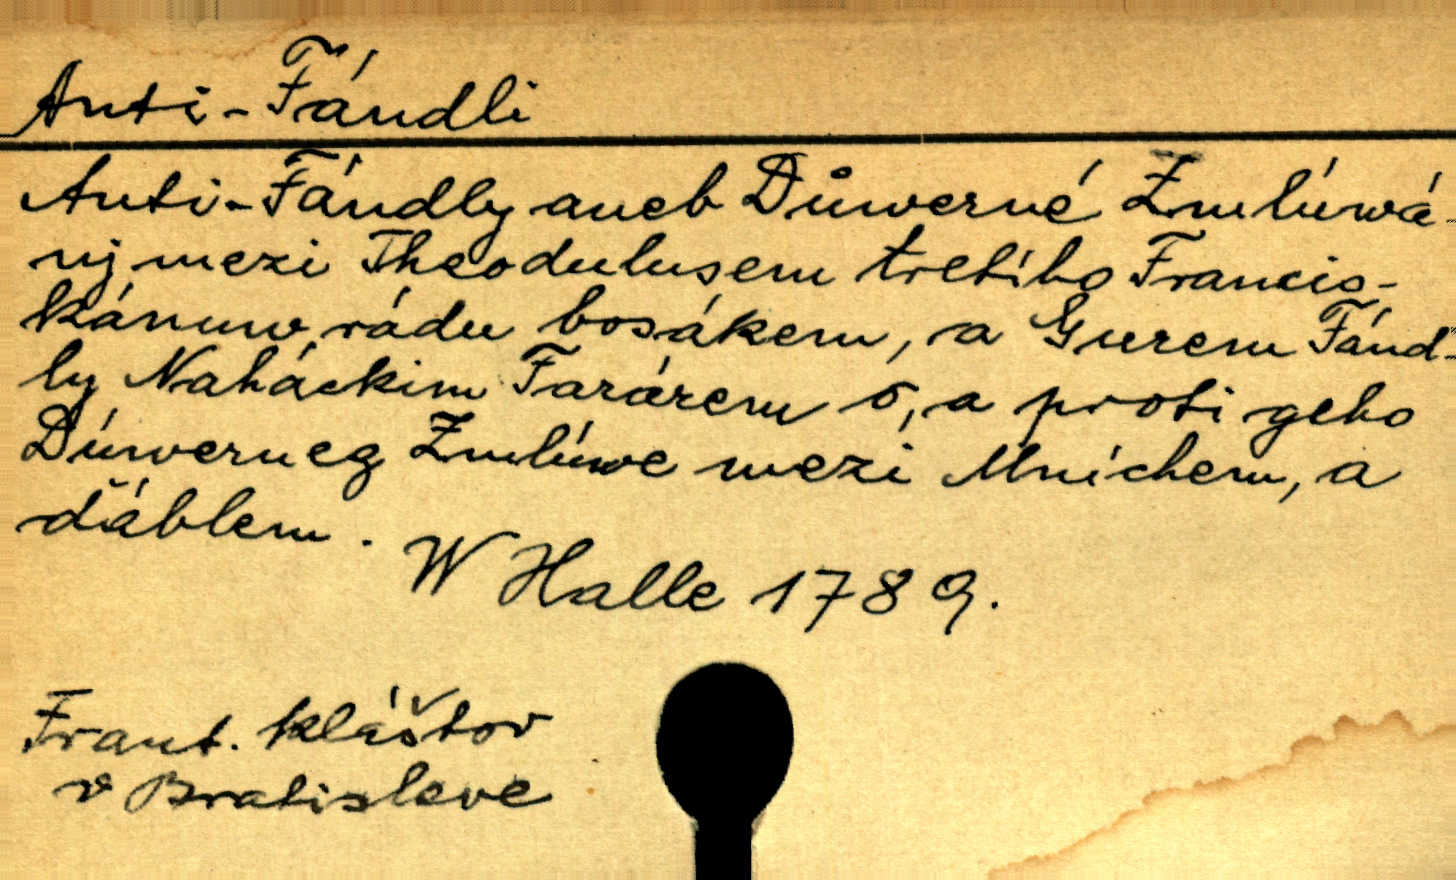 Anti-Fándli
Anti-Fándly aneb Důwerné Zmlúwá-
nj mezi Theodulusem tretího Francis-
kánuw rádu bosákem, a Gurem Fánd-
ly Naháckim Farárem ó, a proti geho
Dúwerneg Zmlúwe mezi Mníchem, a
ďáblem. W Halle 1789.
Frant. kláštor
v Bratislave